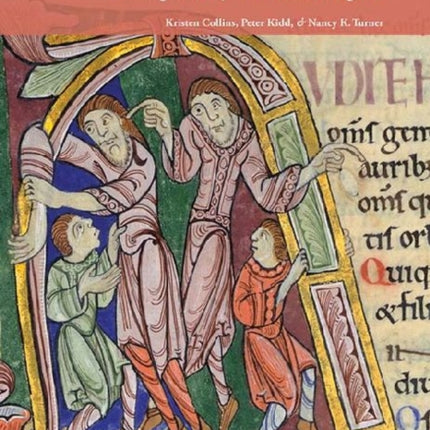 Kristen Collins, Peter Kidd, & Nancy K. Turner
om̄s gen
auribꝫ
om̄s qu
tis orb
Quiq
& fili
diu